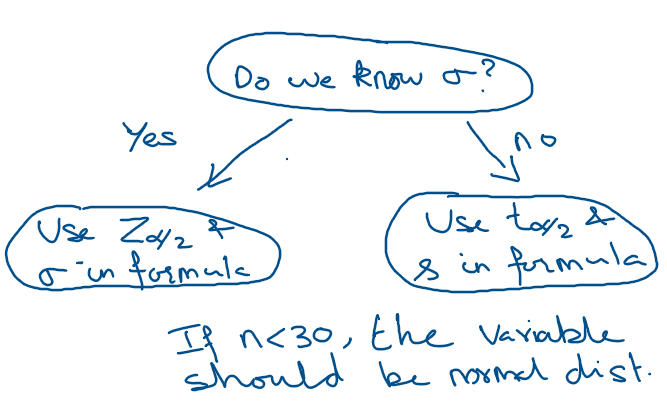 Do we know σ?
Yes
no
Use Zα/2 &
σ in formula
Use tα/2 &
s in formula
If n<30, the variable
should be normal dist.